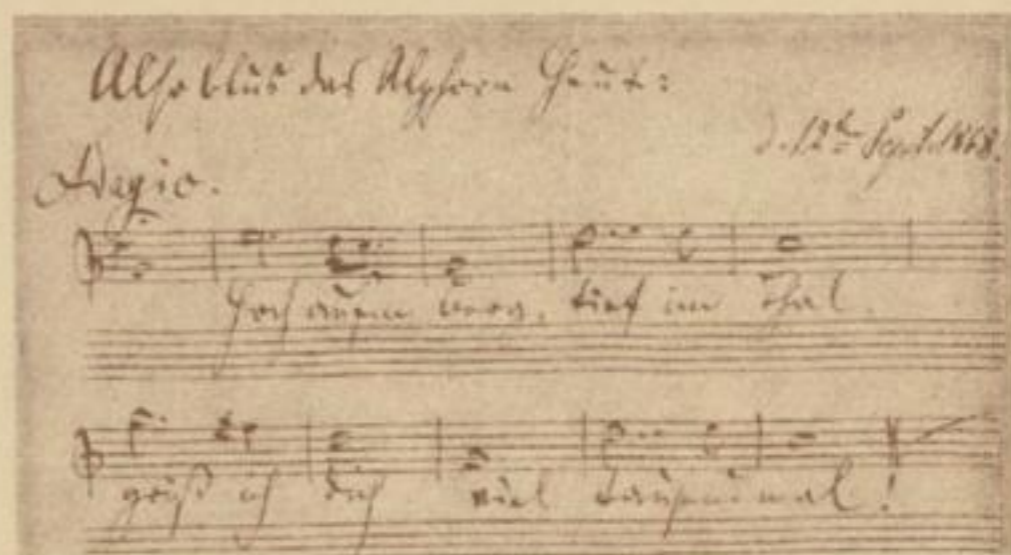 Also blus das Alphorn heut:
d. 12t Sept. 1868.
Adagio.
Hoch aufm Berg, tief im Thal
grüß ich dich viel tausendmal!